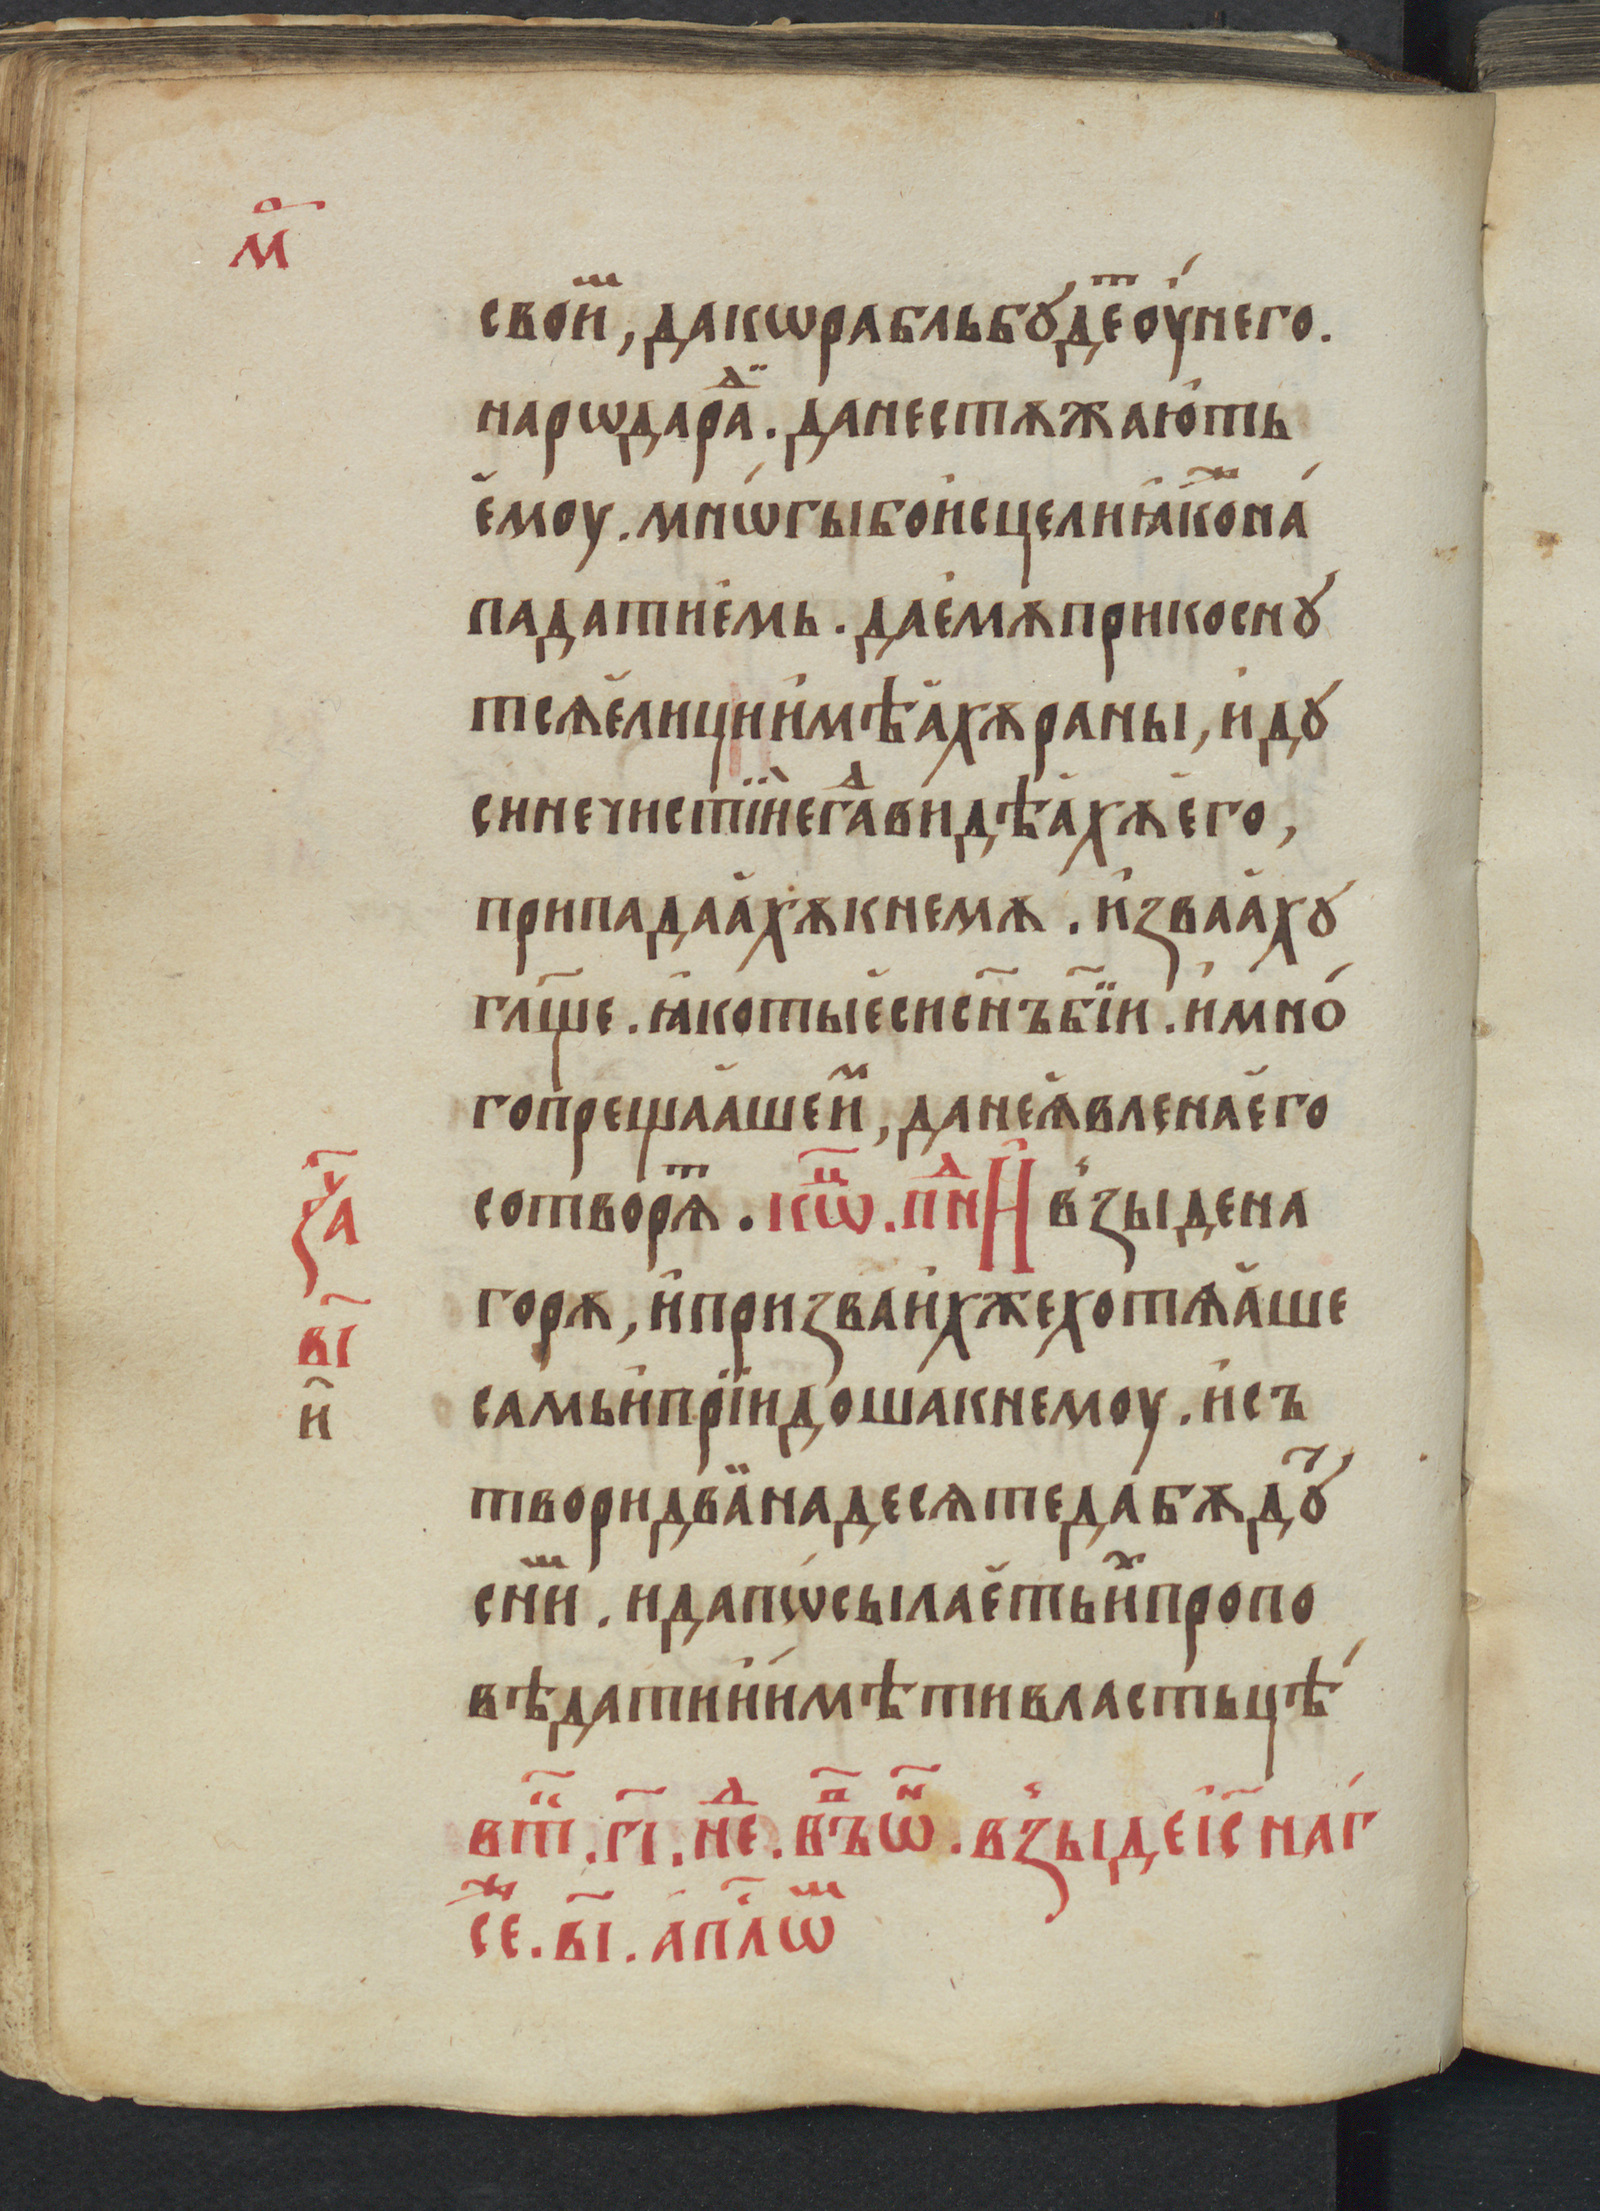 м҃
свои́ⷨ, дакѡрабльбꙋ́деⷮоу҆́него.
нарѡдараⷣ. данестѧжаю́ть
є҆моу. мнѡ́гыбои҆сцелиꙗ҆́коⷤна́
падатие́мь. дає҆мѫприкоснꙋ
тсѧе҆лиции҆мѣа҆хѫраны, идꙋ
синечистїи҆егⷣави́дѣа҆хѫе҆го,
припадаа҆хѫкнемѫ. и҆зваа҆хꙋ
гл҃ще. ꙗ҆котые҆сисн҃ъбж҃їи. и҆мно́
гопрещаа҆шеиⷨ, данеꙗ҆вленае҆го
сотворѧⷮ. кⷰ҇ѡ. пнⷣ И҆ вꙁыдена
горѫ, и҆приꙁваи҆хжехотѧа҆ше
самьи҆прїидошакнемоу. и҆съ
творидва҆надесѧтедабѫдꙋ́
сниⷨ. идапѡ́сылае҆тьиⷯпропо
вѣдатиии҆мѣтивластьцѣ́
ꙁⷱ҇а
в҃і
и҃
вт҃. г҃і. неⷣ. въⷫ҇ѡⷩ҇. вꙁыдеі҆с҃наг
сеⷤ. в҃і. а҆пⷭ҇лѡⷨ